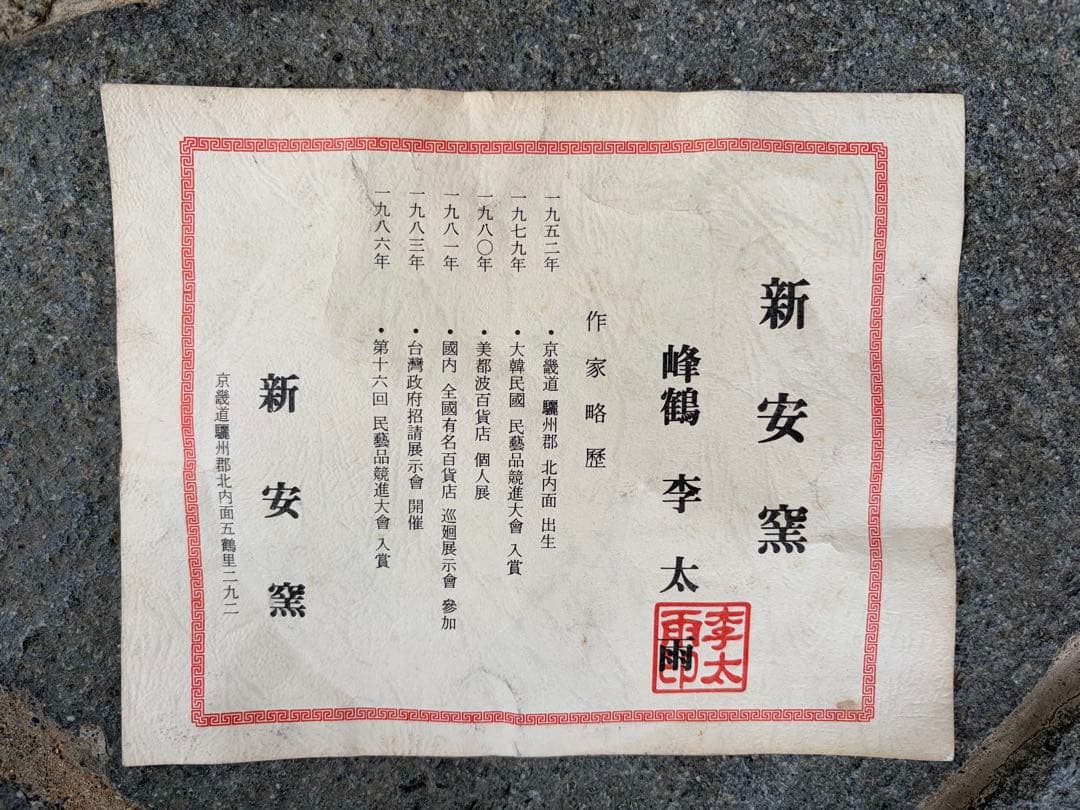 新安窯
峰鶴 李太雨
李太雨印
作家略歷
一九五二年 • 京畿道 驪州郡 北内面 出生
一九七九年 • 大韓民國 民藝品競進大會 入賞
一九八〇年 • 美都波百貨店 個人展
一九八一年 • 國内 全國有名百貨店 巡廻展示會 參加
一九八三年 • 台灣政府招請展示會 開催
一九八六年 • 第十六回 民藝品競進大會 入賞
新安窯
京畿道驪州郡北内面五鶴里二九二